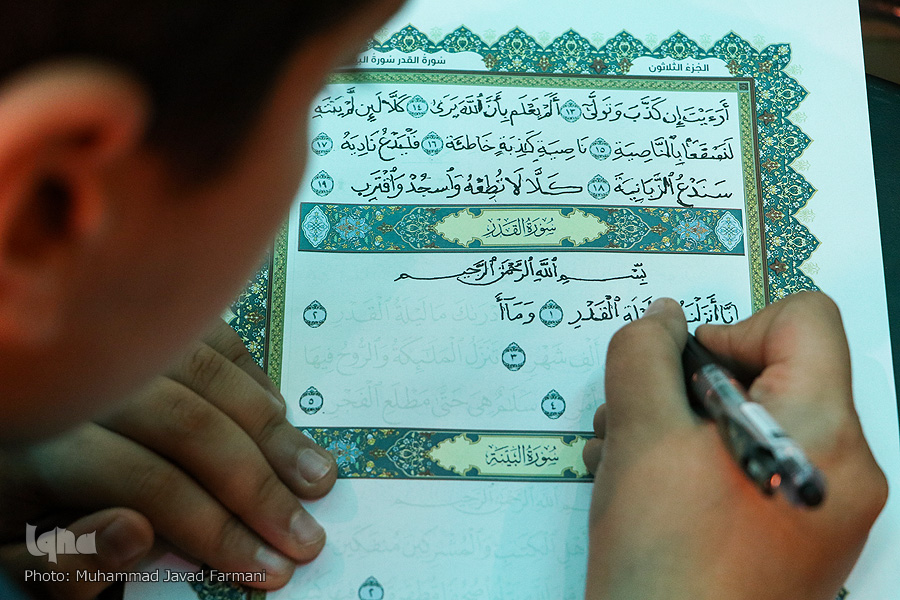 الجزء الثلاثون
سورة القدر سورة
أَرَءَيْتَ إِن كَذَّبَ وَتَوَلَّىٰٓ ١٣ أَلَمْ يَعْلَم بِأَنَّ ٱللَّهَ يَرَىٰ ١٤ كَلَّا لَئِن لَّمْ يَنتَهِ
لَنَسْفَعًۢا بِٱلنَّاصِيَةِ ١٥ نَاصِيَةٍ كَٰذِبَةٍ خَاطِئَةٍ ١٦ فَلْيَدْعُ نَادِيَهُۥ ١٧
سَنَدْعُ ٱلزَّبَانِيَةَ ١٨ كَلَّا لَا تُطِعْهُ وَٱسْجُدْ وَٱقْتَرِب ١٩
سُورَةُ القَدْرِ
بِسْمِ ٱللَّهِ ٱلرَّحْمَٰنِ ٱلرَّحِيمِ
إِنَّآ أَنزَلْنَ لَةِ ٱلْقَدْرِ ١ وَمَآ أَدْرَىٰكَ مَا لَيْلَةُ ٱلْقَدْرِ ٢
أَلْفِ شَهْرٍ ٣ تَنَزَّلُ ٱلْمَلَٰٓئِكَةُ وَٱلرُّوحُ فِيهَا
٤ سَلَٰمٌ هِىَ حَتَّىٰ مَطْلَعِ ٱلْفَجْرِ ٥
سُورَةُ البَيِّنَةِ
ٱللَّهِ ٱلرَّحْمَٰنِ ٱلرَّحِيمِ
أَهْلِ ٱلْكِتَٰبِ وَٱلْمُشْرِكِينَ مُنفَكِّينَ
٢
iqna
Photo: Muhammad Javad Farmani